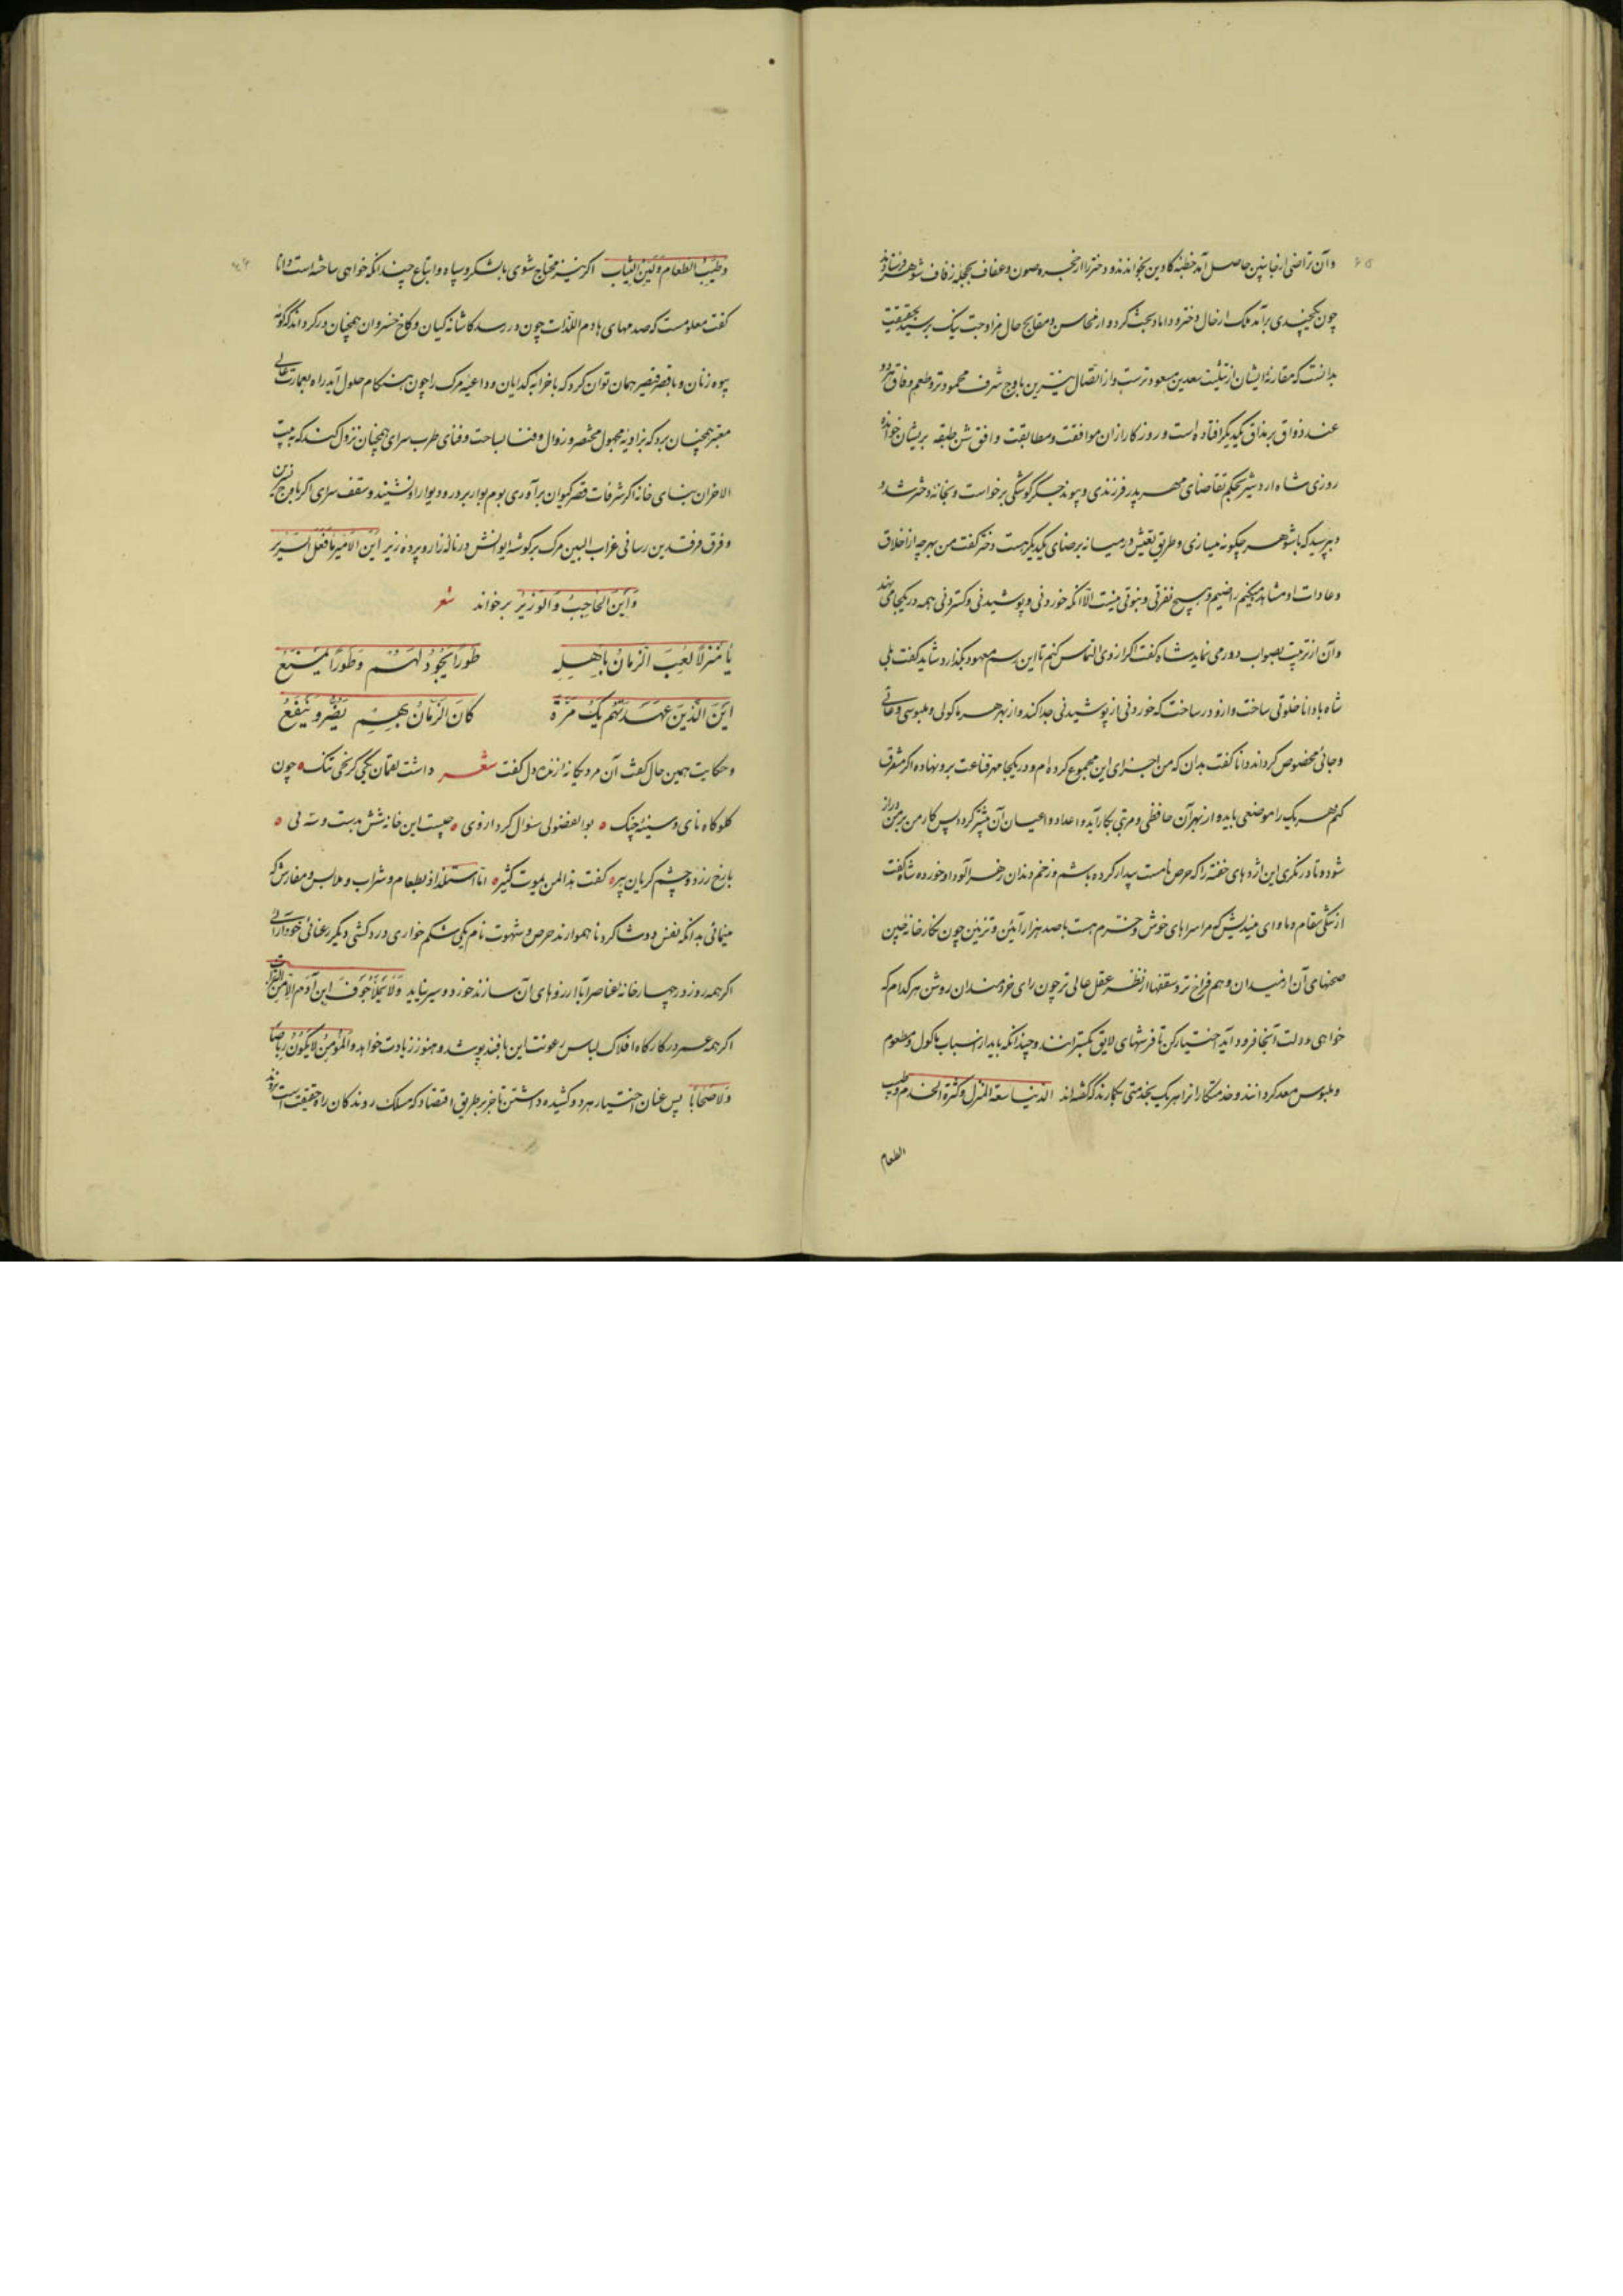 وآن تراضی از جانبین حاصل آمد خطبهٔ کاوین بخواندند و دختر را از حجره صون و عفاف بحجلهٔ زفاف شوهر فرستادند
چون یکچندی برآمد ملک از حال دختر و داماد بحث کرد و از محاسن و مقابح حال مزاوجت نیک برسید بحقیقت
بدانست که مقارنهٔ ایشان از تثلیث سعدین مسعودترست و از اتصال نیرین باوج شرف محمودتر و طعم وفاق هر دو
عند ذواق بر مذاق یکدیگر افتاده است و روزگار از آن موافقت و مطابقت وافق شن طبقه بریشان خوانده
روزی شاه اردشیر بحکم تقاضای مهر پدر فرزندی و پیوند جگر گوشگی برخواست و بخانهٔ دختر شد و
بپرسید که با شوهر چگونه میسازی و طریق تعیش در میانه برضای یکدیگر هست دختر گفت من بهرچه از اخلاق
و عادات او مشاهده میکنیم راضیم و هیچ نفرتی و نبوتی نیست الّا آنکه خوردنی و پوشیدنی و گستردنی همه در یکجا می نهد
و آن از ترتیب بصواب دور می نماید شاه گفت اگر از وی التماس کنم تا این رسم معهود بگذارد شاید گفت بلی
شاه با دانا خلوتی ساخت و ازو درساخت که خوردنی از پوشیدنی جدا کند و از بهر هر ماکولی و ملبوسی وعائی
و جائی مخصوص گرداند دانا گفت بدان که من اجزای این مجموع کرده‌ام و در یکجا مهر قناعت برو نهاده اگر متفرق
کنم هر یک را موضعی باید و از بهر آن حافظی و مرتبی بکار آید و اعداد و اعیان آن بیشتر گردد پس کار من بر من دراز
شود و تا در نگری این اژدهای خفته را که حرص نامست بیدار کرده باشم و زخم دندان زهرآلود او خورده شاه گفت
از تنگی مقام و ماوای میندیش که مرا سراهای خوش و خرم هست با صد هزار آئین و تزئین چون نگارخانهٔ چین
صحنهای آن از میدان وهم فراخ‌تر و سقفها از نظر عقل عالی تر چون رای خردمندان روشن هر کدام که
خواهی و دلت آنجا فرود آید اختیار کن تا فرشهای لایق بگسترانند و چندانکه باید از اسباب ماکول و مطعوم
و ملبوس معد گردانند و خدمتکارانرا هر یک بخدمتی بکارند که گفته‌اند الدنیا سعة المنزل و کثرة الخدم و طیب
الطعام
وطیب الطعام و لین الثیاب اگر نیز محتاج شوی بالشکر و سپاه و اتباع چندانکه خواهی ساخته است دانا
گفت معلومست که صدمهای هادم اللذات چون در رسد کاشانهٔ کیان و کاخ خسروان همچنان درگرداند که کومهٔ
پیوه زنان و با قصر قیصر همان توان کرد که با خرابهٔ گدایان و داعیهٔ مرگ را چون هنگام حلول آید راه بعمارت عالی
معتبر همچنان برد که بزاویهٔ مجهول مختصر و زوال و فنا بساحت و فنای طرب سرای همچنان نزول کند که ببیت
الاحزان بنای خانه اگر شرفات قصر کیوان برآوری بوم بوار بر در و دیوار او نشیند و سقف سرای اگر باوج نسرین
و فرق فرقدین رسانی غراب البین مرگ بر گوشهٔ ایوانش در نالهٔ زار و پردهٔ زیر این الامیر ما فعل السریر
و این الحاجب و الوزیر برخواند شعر
یا منزلا لعب الزمان باهله طورا یجود لهم و طورا یمنع
این الذین عهدتهم بک مرة کان الزمان بهم یضر و ینفع
و حکایت همین حال گفت آن مرد یگانهٔ زنده دل گفت شعر داشت لقمان یکی کریجی تنگ چون
گلوگاه نای و سینهٔ چنگ بوالفضولی سؤال کرد از وی چیست این خانه شش بدست و سه پی
با رخ زرد و چشم گریان پیر گفت هذا لمن یموت کثیر اما استلذاذ بطعام و شراب و ملابس و مفارش که
مینمائی بدانکه نفس دو شاگرد ناهموارند حرص و شهوت نام یکی شکم خواری درد کشی دیگر رعنائی خودآرائی
اگر همه روز در چهارخانهٔ عناصر اباء آرزوهای آن سازند خورد و سیر نیاید و لا یملأ جوف ابن آدم الا من التراب
اگر همه عمر در کارگاه افلاک لباس رعونت این بافند پوشد و هنوز زیادت خواهد و المؤمن لا یکون
و لا صخابا پس عنان اختیار هر دو کشیده داشتن تا جز بر طریق اقتصاد که مسلک روندگان راه حقیقت است نروند